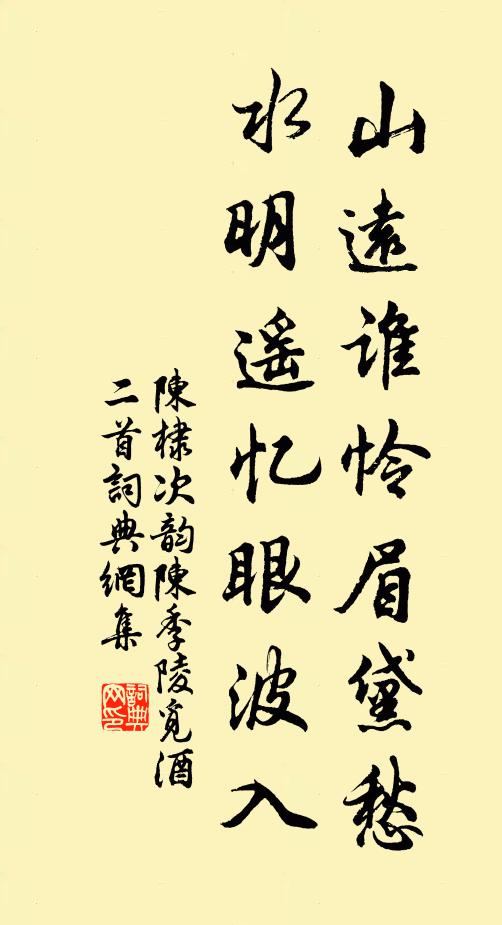 山遠誰怜眉黛愁
水明遥忆眼波入
陳棣次韵陳季陵覓酒
二首詞典網集
詞典网印